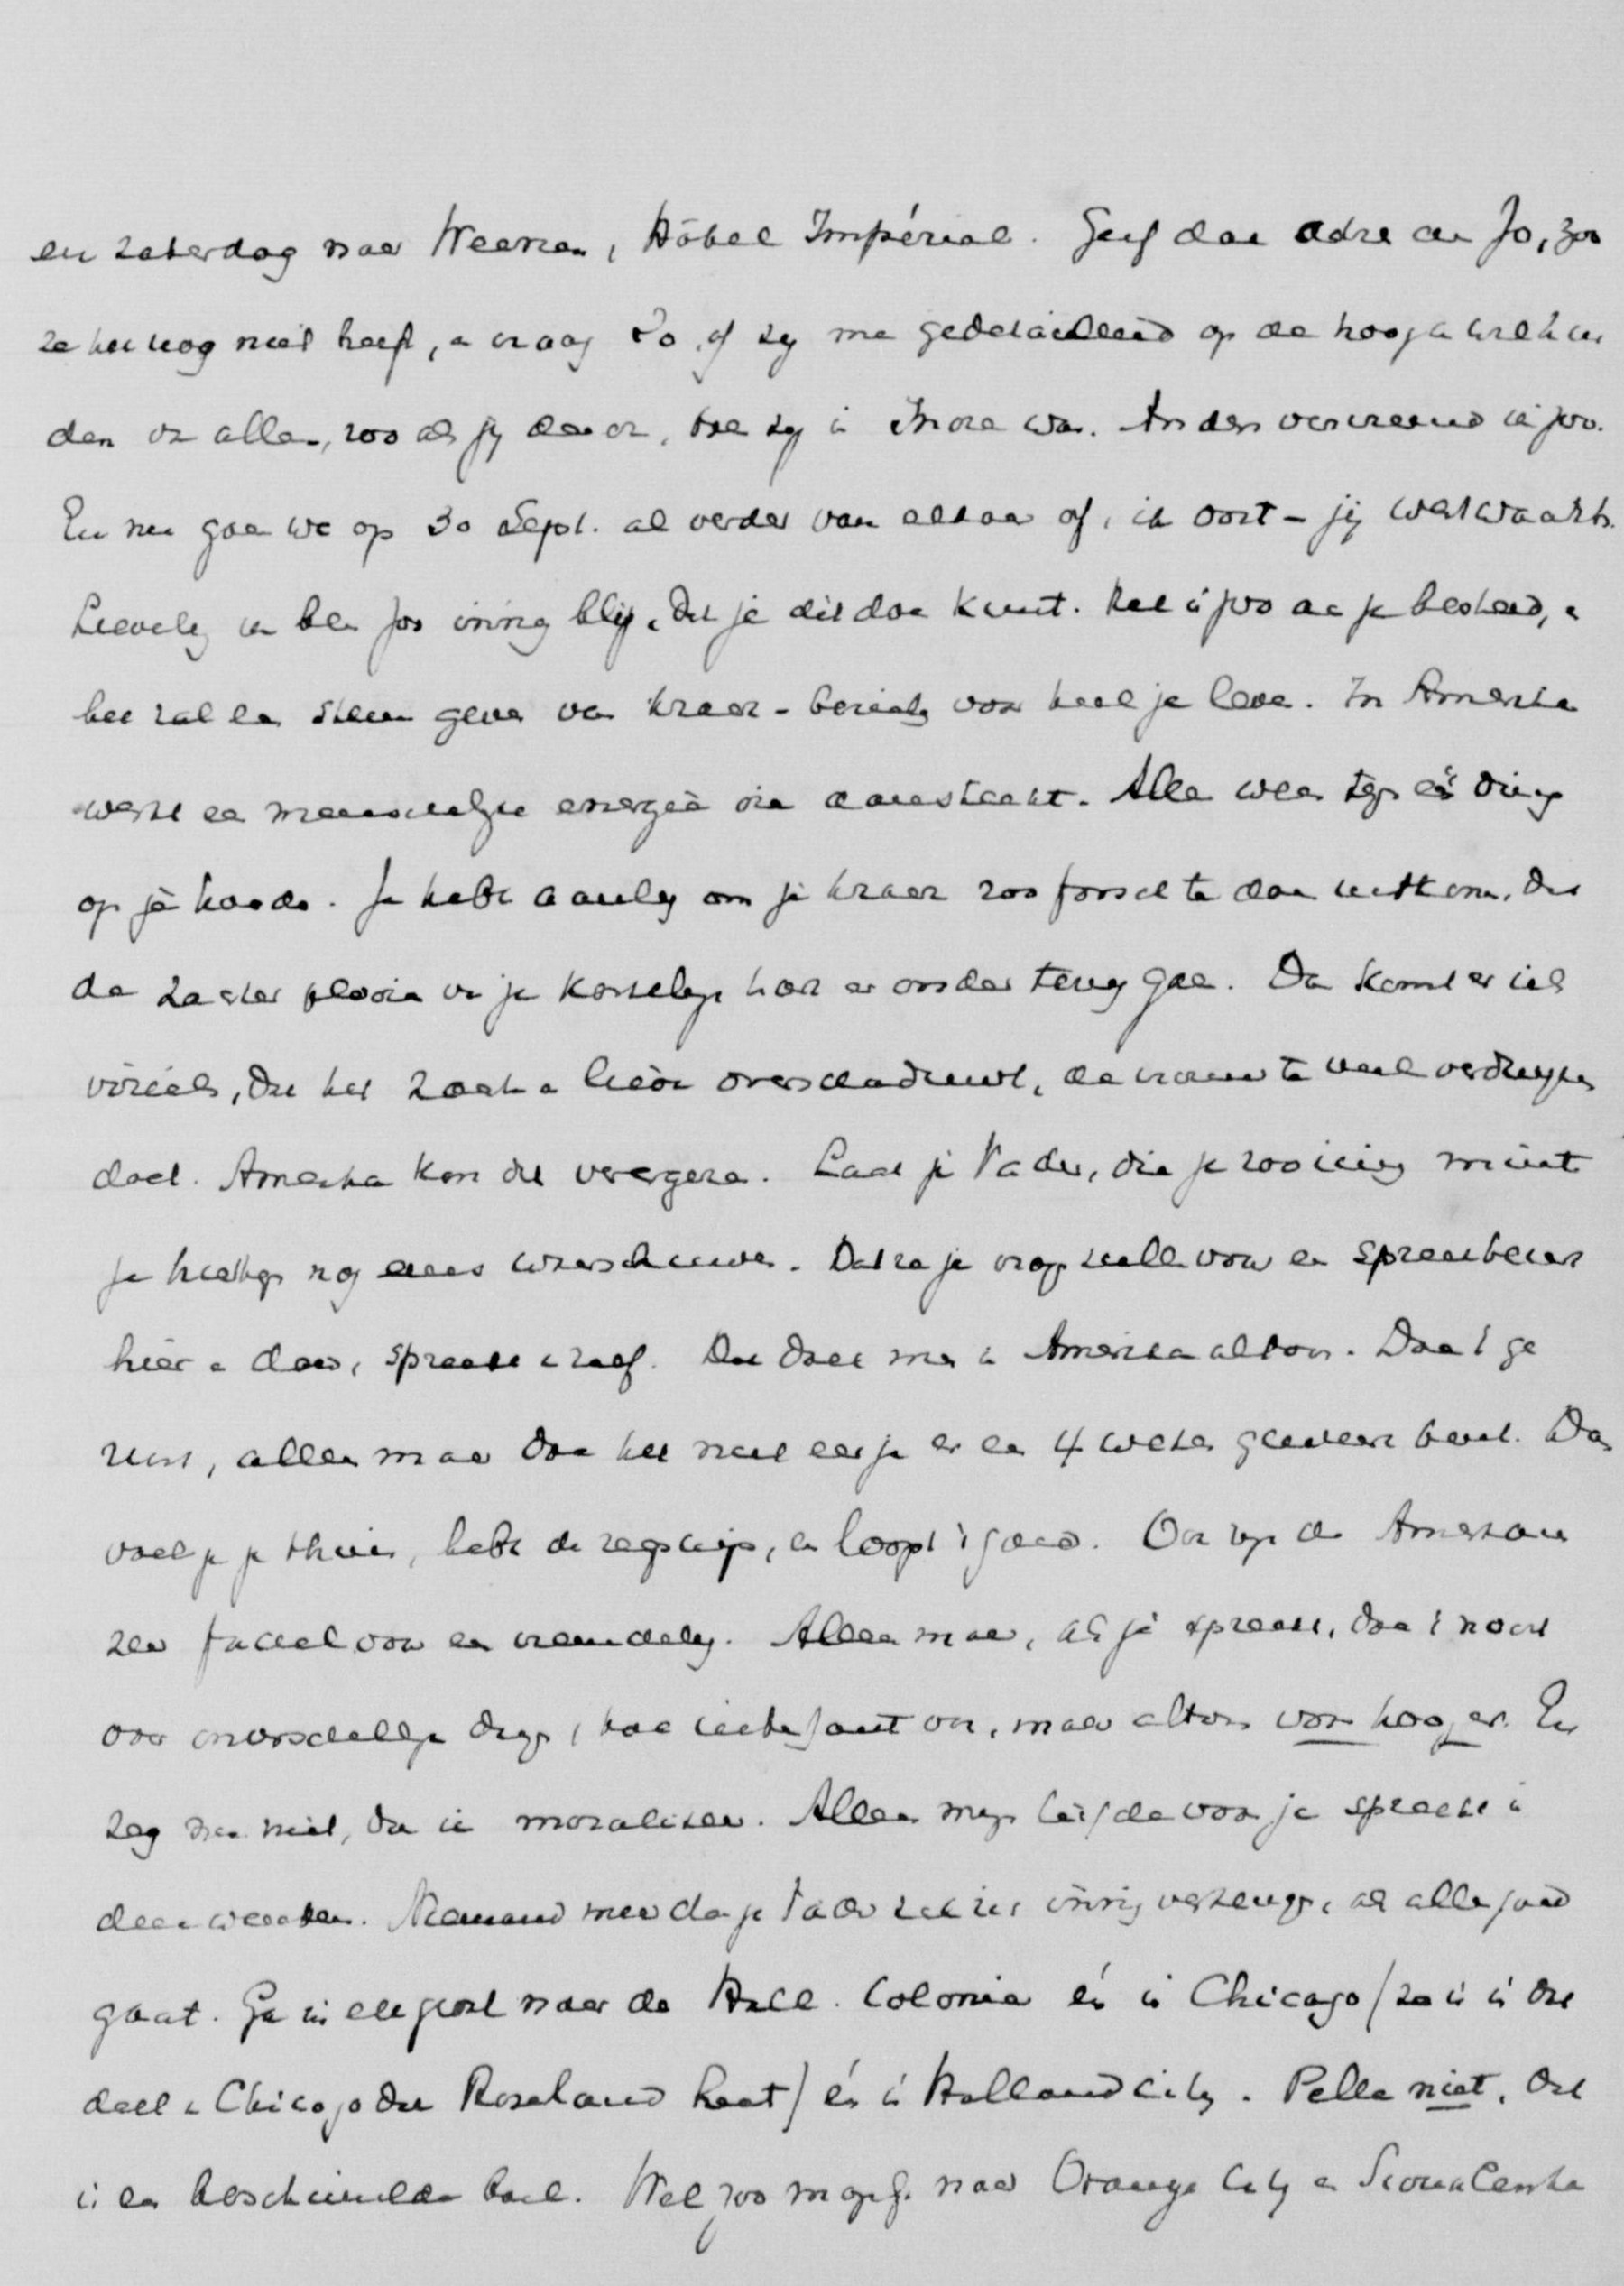 en zaterdag naar Weenen, Hôtel Impérial. Geef dan adres aan Jo, zoo
ze het nog niet heeft, en vraag Jo, of zij me gedetailleerd op de hoogte wil hou
den van alles, zoo als jij deedt, toe zij in was. Anders vervreemd ik zoo.
En nu gaan we op 30 Sept. al verder van elkaar af, ik oost – jij westwaarts.
Lieveling ik ben zoo innig blij, dat je dit doen kunt. Het is zoo aan je besteed, en
het zal een steun geven van kracht – bezieling voor heel je leven. In Amerika
werkt een menschelijke energie die aansteekt. Alleen weer tegen één ding
op je hoede. Je hebt aanleg om je kracht zoo forsch te doen uitkomen, dat
de zachter plooien van je kostelijk hart er onder terug gaan. Dan komt er iets
viriels, dat het zachte en lieve overschaduwt, de vrouw te veel verdwijnen
doet. Amerika kan dit verergeren. Laat je Vader, die je zoo innig mint
je hiertegen nog eens waarschuwen. Dat ze je vragen zullen voor een spreekbeurt
hier en daar, spreekt van zelf. Dat doet men in Amerika altoos. Doe 't ge
rust, alleen maar doe het niet eer je er een 4 weken geweest bent. Dan
voel je je thuis, hebt de zegswijs, en loopt 't goed. Ook zijn de Amerikanen
zeer faciel voor een vreemdeling. Alleen maar, als je spreekt, doe 't nooit
over onverschillige dingen, hoe interessant ook, maar altoos voor hooger. En
zeg nu niet, dat ik moraliseer. Alleen mijn liefde voor je spreekt in
deze woorden. Niemand meer dan je Vader zal zich innig verheugen, als alles goed
gaat. Ga in elk geval naar de Holl. Colonie én in Chicago (ze is in dat
deel van Chicago dat Roseland heet) én in Holland City. Pella niet, dat
is een beschimmelde boel. Wel zoo mogelijk naar Orange City en Sioux Centre